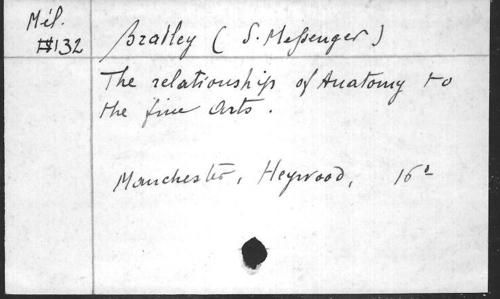 Mél.
#132
Bradley (S. Messenger)
The relationship of Anatomy to
the fine Arts.
Manchester, Heywood, 16°